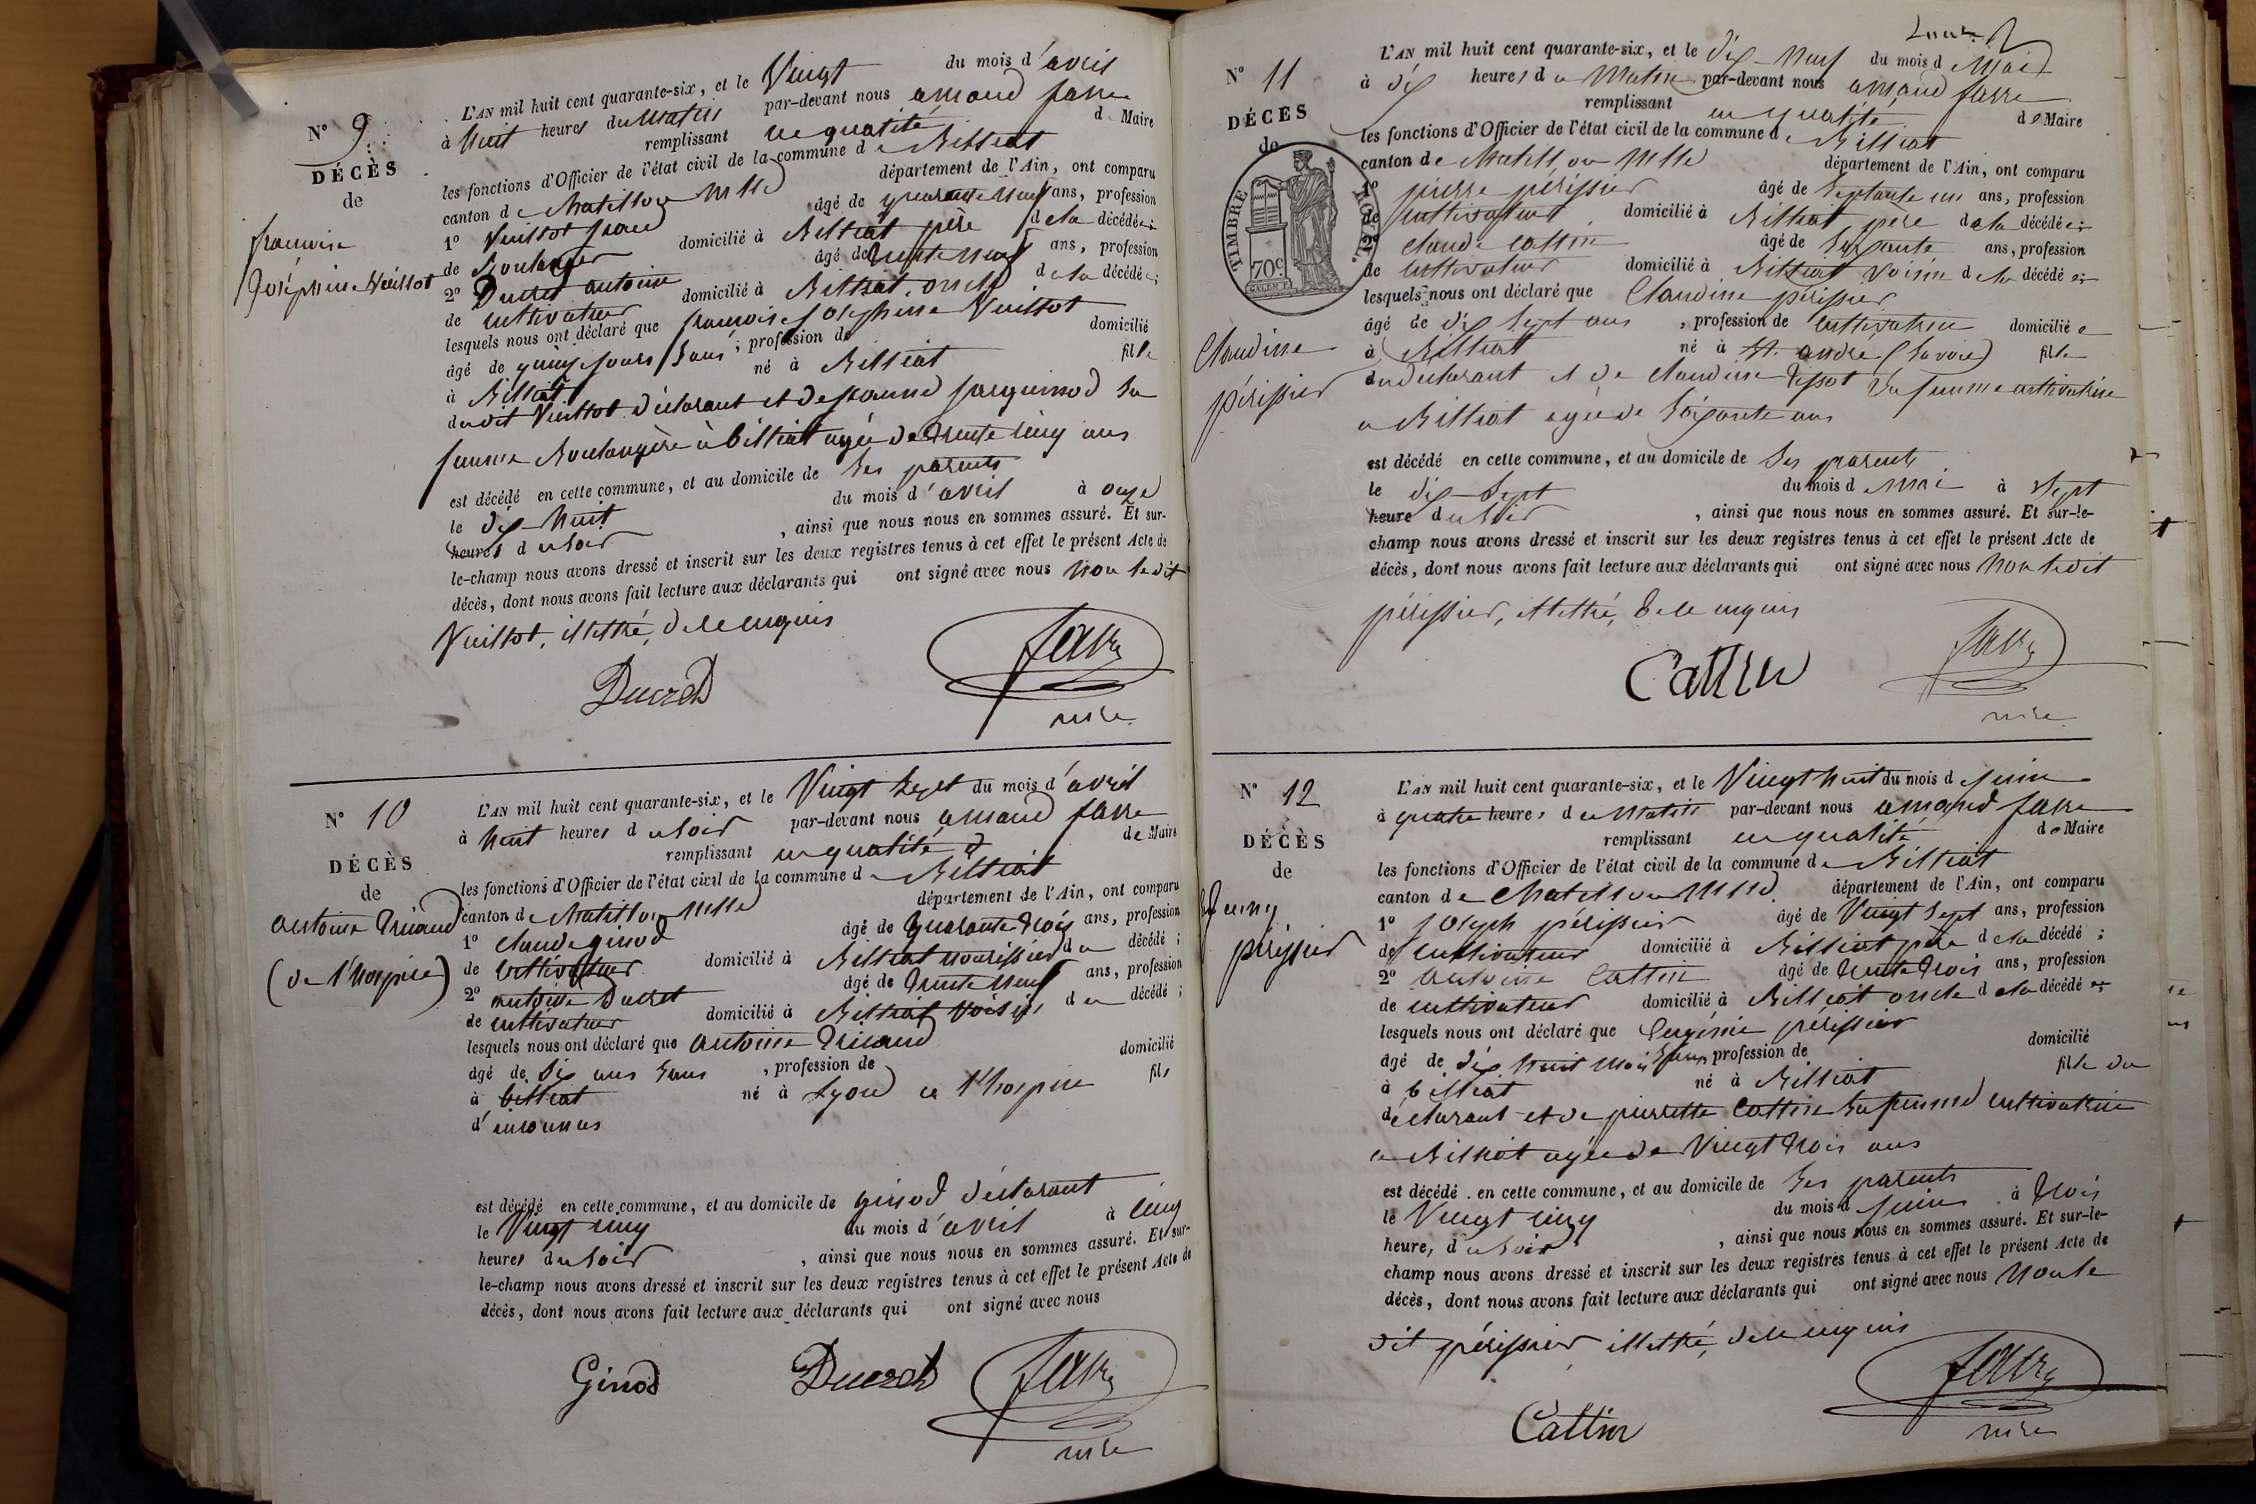 N° 9
DÉCÈS
de
françoise
Joséphine Vuillot
L'AN mil huit cent quarante-six, et le Vingt du mois d'avril
à huit heures du matin par-devant nous amand favre
remplissant en qualité de Maire
les fonctions d'Officier de l'état civil de la commune de Billiat
canton de Chatillon département de l'Ain, ont comparu
1° Vuillot âgé de quarante neuf ans, profession
de Boulanger domicilié à Billiat père de la décédée;
2° Ducret antoine âgé de trente neuf ans, profession
de cultivateur domicilié à Billiat, oncle de la décédée;
lesquels nous ont déclaré que françoise Josephine Vuillot
âgé de quinze jours sans, profession de domicilié
à Billiat né à Billiat fille
dudit Vuillot déclarant et de sa
femme Boulangère à billiat agée de trente cinq ans
est décédé en cette commune, et au domicile de ses parents
le dix-huit du mois d'avril à onze
heures du soir, ainsi que nous nous en sommes assuré. Et sur-
le-champ nous avons dressé et inscrit sur les deux registres tenus à cet effet le présent Acte de
décès, dont nous avons fait lecture aux déclarants qui ont signé avec nous non ledit
Vuillot, illettré, de ce enquis
Ducret favre
mire
N° 10
DÉCÈS
de
antoine
(de l'hospice)
L'AN mil huit cent quarante-six, et le Vingt sept du mois d'avril
à huit heures du soir par-devant nous amand favre
remplissant en qualité de Maire
les fonctions d'Officier de l'état civil de la commune de Billiat
canton de Chatillon département de l'Ain, ont comparu
1° claude ginod âgé de quarante trois ans, profession
de cultivateur domicilié à Billiat nourissier du décédé;
2° antoine Ducret âgé de trente neuf ans, profession
de cultivateur domicilié à Billiat voisin, du décédé;
lesquels nous ont déclaré que antoine
âgé de dix ans sans, profession de domicilié
à billiat né à Lyon a l'hospice fils
d'inconnus
est décédé en cette commune, et au domicile de ginod déclarant
le Vingt cinq du mois d'avril à cinq
heures du soir, ainsi que nous nous en sommes assuré. Et sur-
le-champ nous avons dressé et inscrit sur les deux registres tenus à cet effet le présent Acte de
décès, dont nous avons fait lecture aux déclarants qui ont signé avec nous
Ginod Ducret favre
mire
N° 11
DÉCÈS
de
TIMBRE ROYAL.
70c
Claudine
périssier
L'AN mil huit cent quarante-six, et le dix-neuf du mois de Mai
à dix heures du Matin par-devant nous amand favre
remplissant en qualité de Maire
les fonctions d'Officier de l'état civil de la commune de Billiat
canton de Chatillon département de l'Ain, ont comparu
1° pierre périssier âgé de septante un ans, profession
de cultivateur domicilié à Billiat père de la décédée;
2° claude Cattin âgé de soixante ans, profession
de cultivateur domicilié à Billiat voisin de la décédée;
lesquels nous ont déclaré que Claudine périssier
âgé de dix sept ans, profession de cultivatrice domiciliée
à Billiat né à St. andré (Savoie) fille
du déclarant et de claudine Tissot sa femme cultivatrice
a Billiat agée de soixante ans
est décédé en cette commune, et au domicile de ses parents
le dix-sept du mois de mai à sept
heure du soir, ainsi que nous nous en sommes assuré. Et sur-le-
champ nous avons dressé et inscrit sur les deux registres tenus à cet effet le présent Acte de
décès, dont nous avons fait lecture aux déclarants qui ont signé avec nous non ledit
périssier, illettré, de ce enquis
Cattin favre
mire
N° 12
DÉCÈS
de
périssier
L'AN mil huit cent quarante-six, et le Vingt huit du mois de juin
à quatre heures du matin par-devant nous amand favre
remplissant en qualité de Maire
les fonctions d'Officier de l'état civil de la commune de Billiat
canton de Chatillon département de l'Ain, ont comparu
1° Joseph périssier âgé de Vingt sept ans, profession
de cultivateur domicilié à Billiat père de la décédé;
2° antoine Cattin âgé de trente trois ans, profession
de cultivateur domicilié à Billiat oncle de la décédée;
lesquels nous ont déclaré que Eugénie périssier
âgé de dix huit mois sans, profession de domicilié
à billiat né à Billiat fille du
déclarant et de pierrette Cattin sa femme cultivatrice
a Billiat agée de Vingt trois ans
est décédé en cette commune, et au domicile de ses parents
le Vingt cinq du mois de juin à trois
heures du soir, ainsi que nous nous en sommes assuré. Et sur-le-
champ nous avons dressé et inscrit sur les deux registres tenus à cet effet le présent Acte de
décès, dont nous avons fait lecture aux déclarants qui ont signé avec nous non le
dit périssier illettré, de ce enquis
Cattin favre
mire